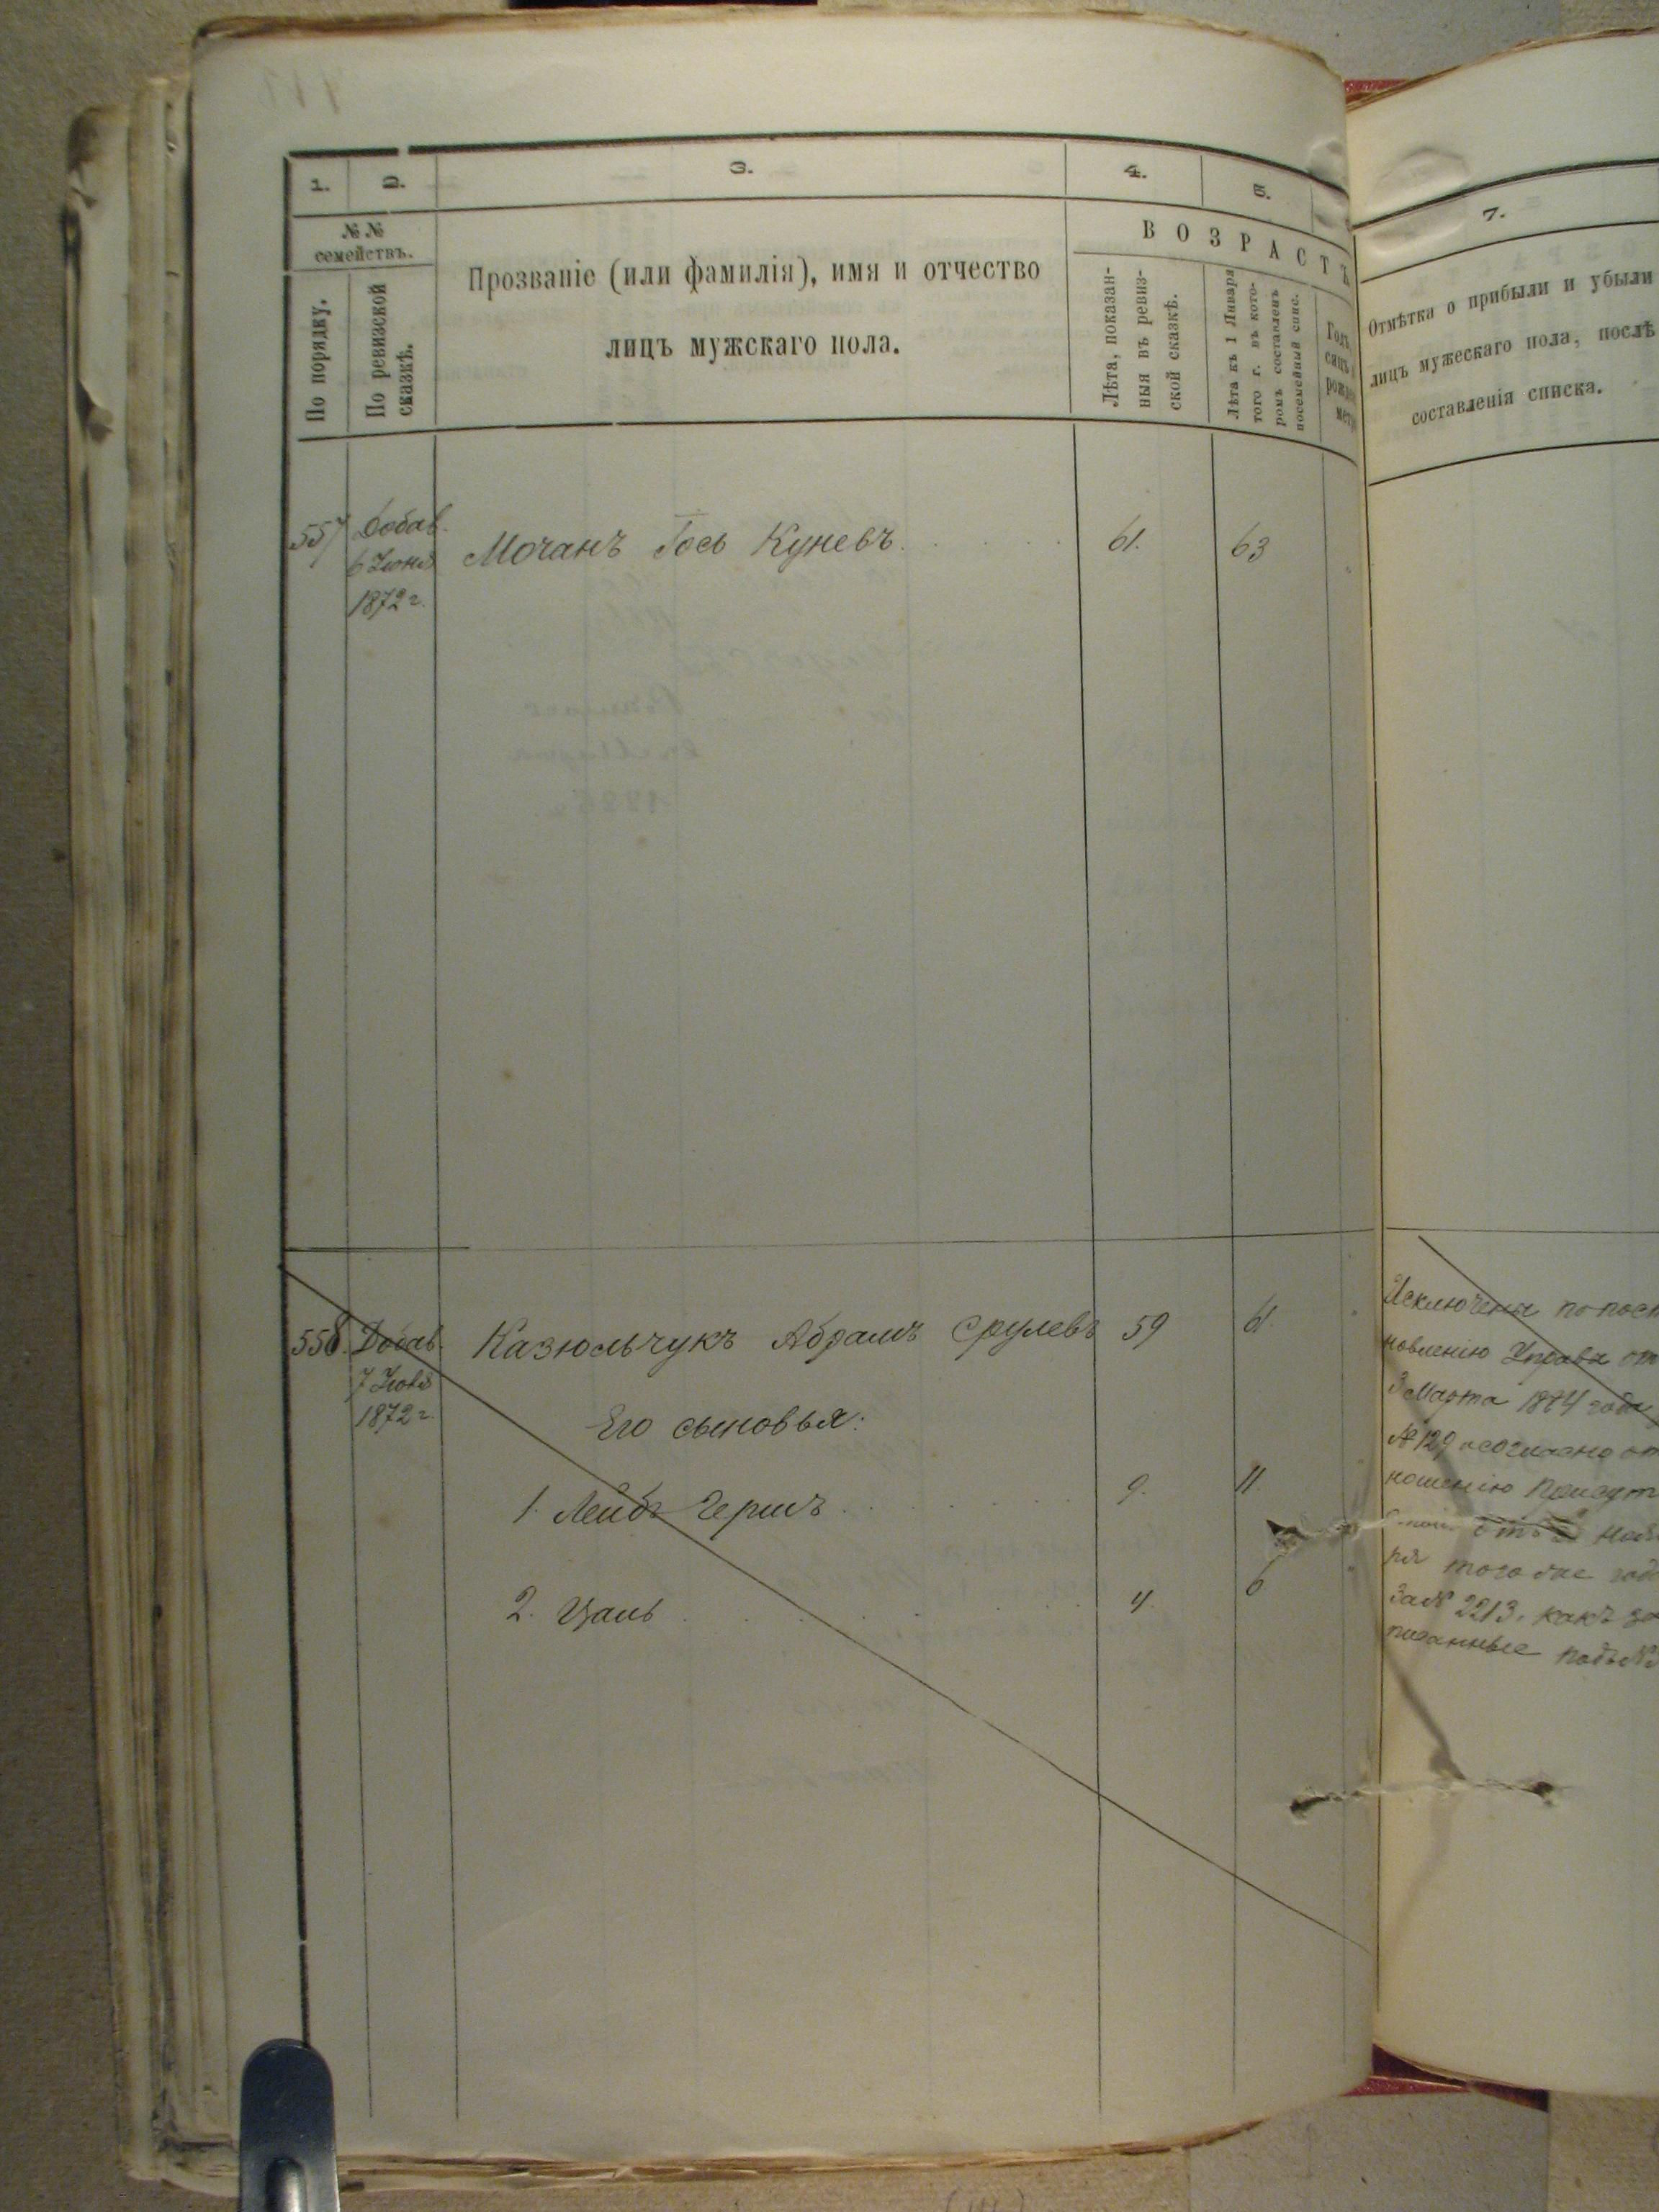 1. 2. 3. 4. 5.
№ № семействъ.
По порядку.
По ревизской сказкѣ.
Прозваніе (или фамилія), имя и отчество
лицъ мужскаго пола.
ВОЗРАСТЪ
Лѣта, показан-
ныя въ ревиз-
ской сказкѣ.
Лѣта къ 1 Января
того г. въ кото-
ромъ составленъ
посемейный спис.
557 Добав. Мочанъ Іось Куневъ. 61. 63
6 Іюня
1872 г.
558. Добав. Казюльчукъ Абрамъ Срулевъ 59 61.
7 Іюня
1872 г.
Его сыновья:
1. Лейбъ Гершъ 9. 11.
2. Цаль 4. 6
7.
Отмѣтка о прибыли и убыли
лицъ мужескаго пола, послѣ
составленія списка.
Исключены по пост
новленію Управы от
3 Марта 1874 года
№ 129 согласно от
ношенію Присут
ря того же год
За № 2213, какъ за
писанные подъ №